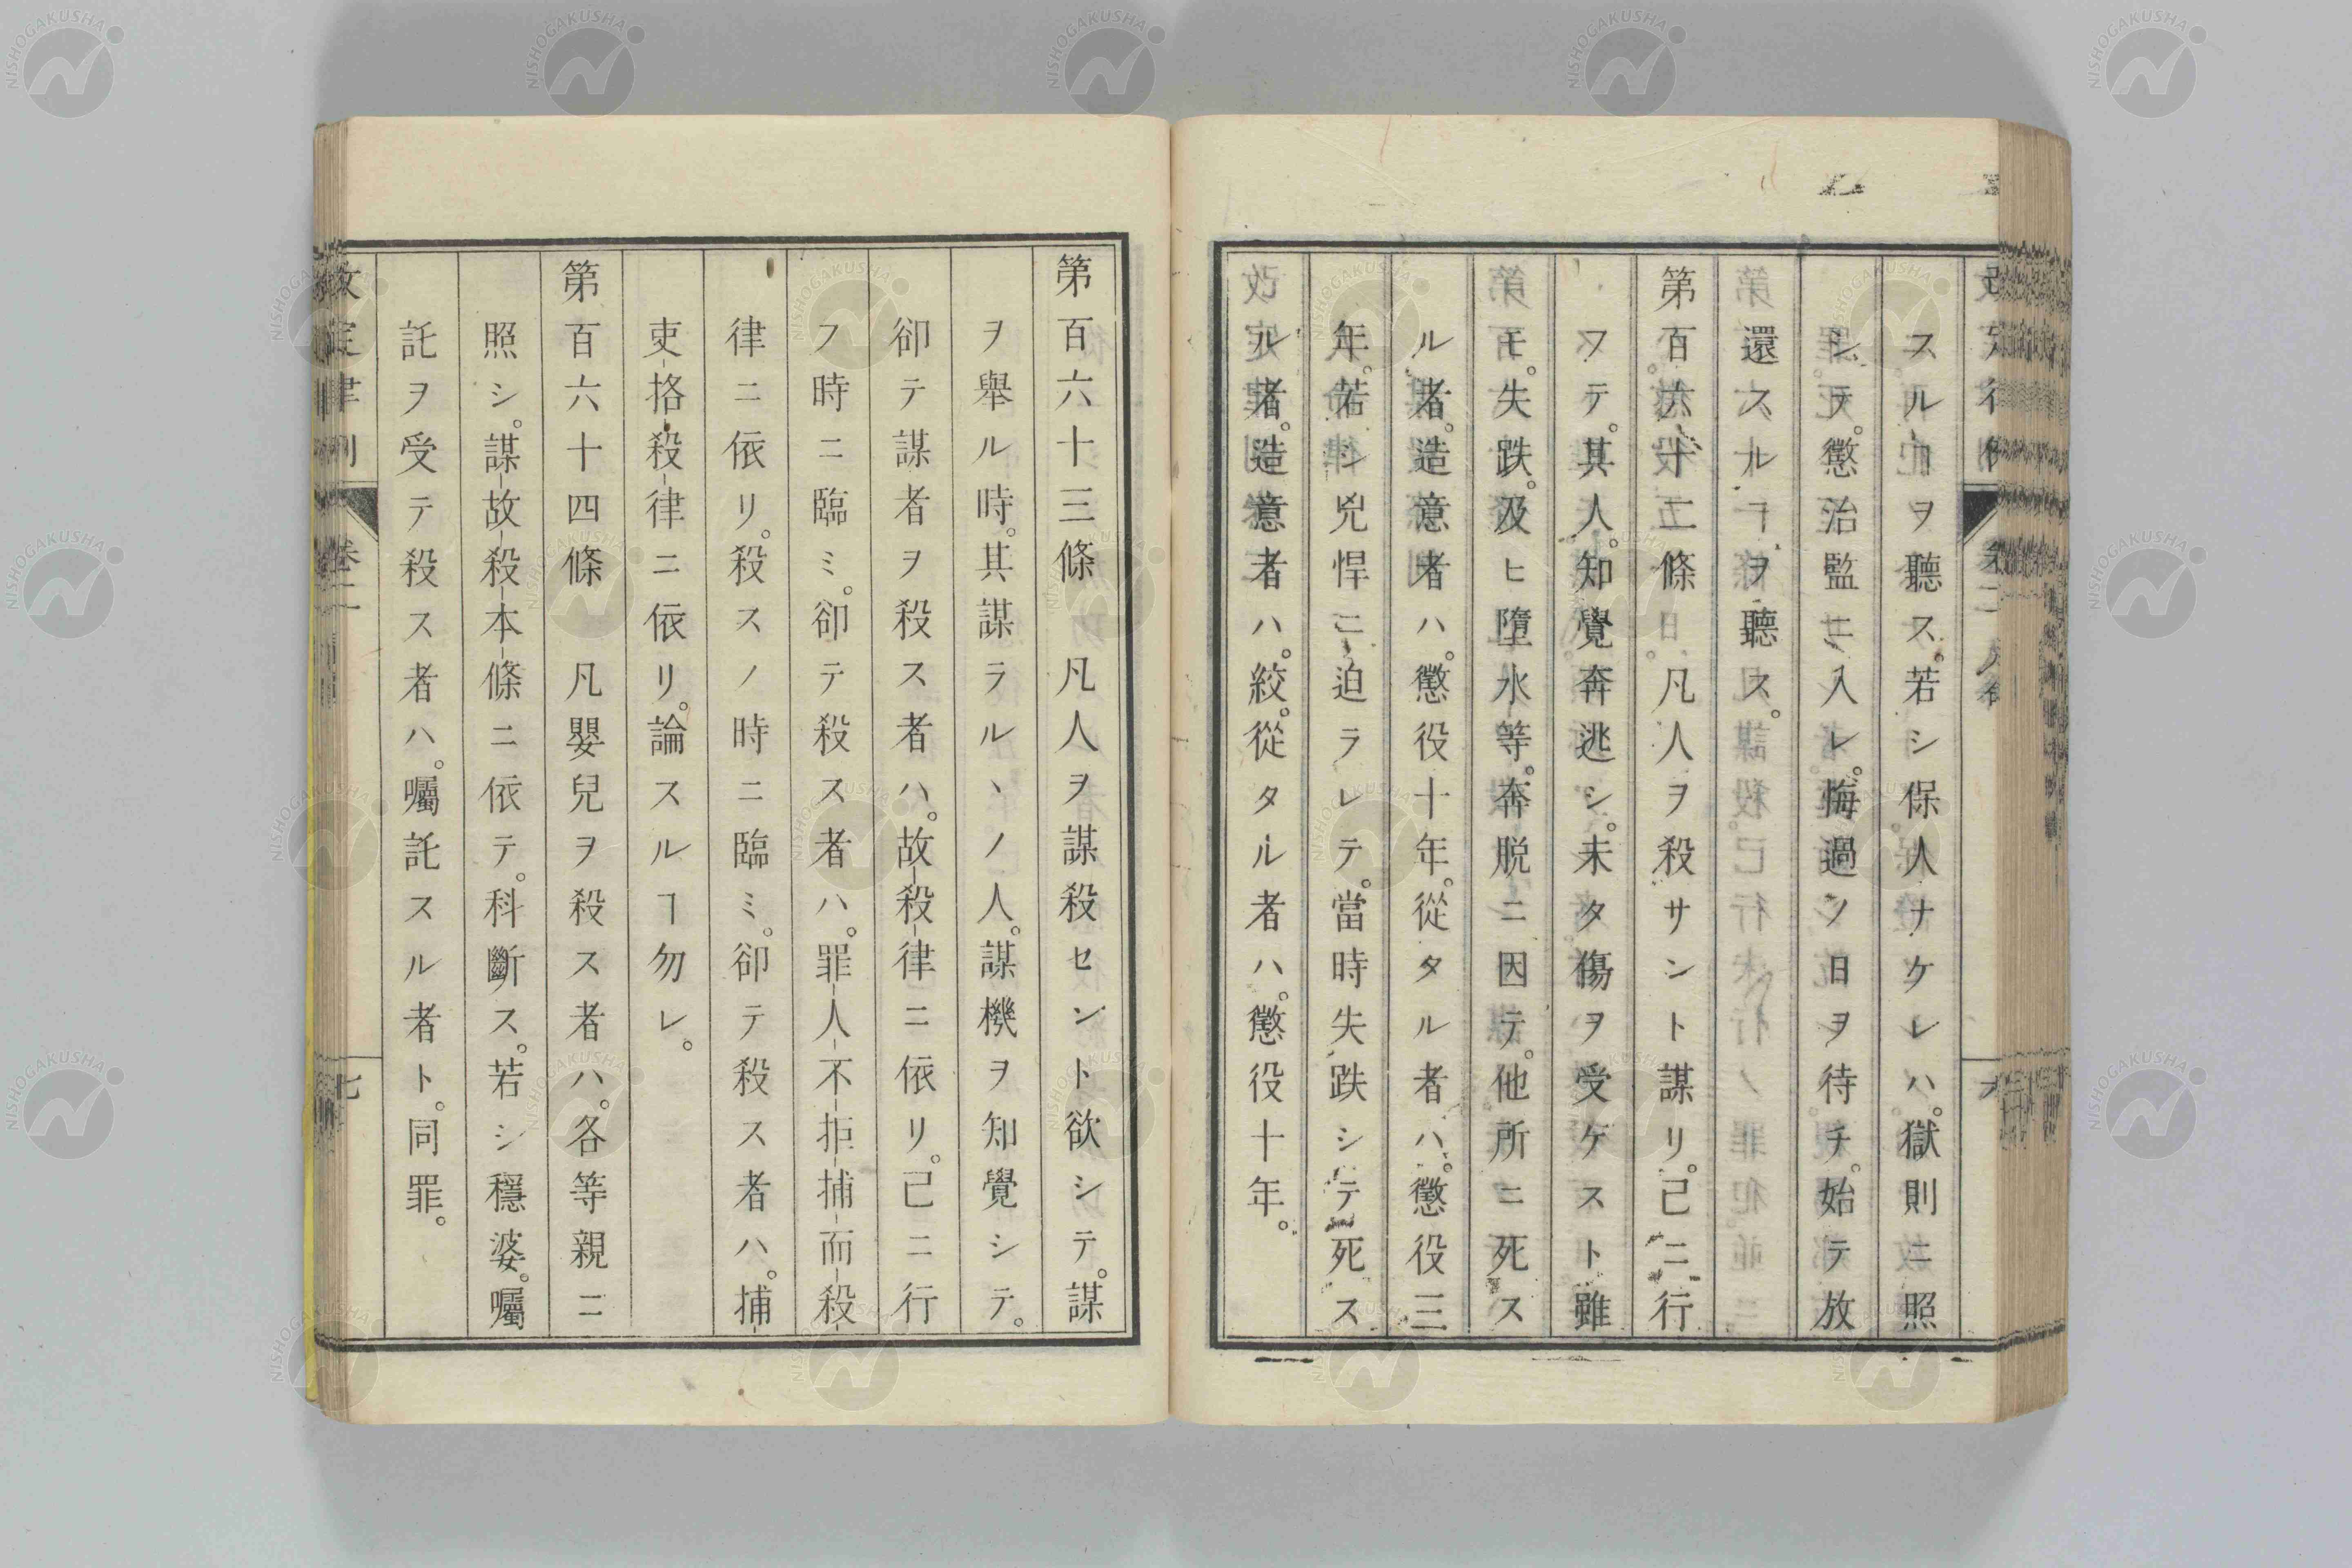 スルヿヲ聽ス。若シ保人ナケレハ。獄則ニ照
シテ。懲治監ニ入レ。悔過ノ日ヲ待チ。始テ放
還スルヿヲ聽ス。
第百六十二條 凡人ヲ殺サント謀リ。已ニ行
フテ。其人。知覺奔逃シ。未タ傷ヲ受ケスト雖
モ。失跌。及ヒ墮水等。奔脱ニ因テ。他所ニ死ス
ル者。造意者ハ。懲役十年。從タル者ハ。懲役三
年。若シ兇悍ニ迫ラレテ。當時失跌シテ死ス
ル者。造意者ハ。絞。從タル者ハ。懲役十年。
第百六十三條 凡人ヲ謀殺セント欲シテ。謀
ヲ擧ル時。其謀ラルヽノ人。謀機ヲ知覺シテ。
卻テ謀者ヲ殺ス者ハ。故殺律ニ依リ。已ニ行
フ時ニ臨ミ。卻テ殺ス者ハ。罪人不拒捕而殺
律ニ依リ。殺スノ時ニ臨ミ。卻テ殺ス者ハ。捕
吏格殺律ニ依リ。論スルヿ勿レ。
第百六十四條 凡嬰兒ヲ殺ス者ハ。各等親ニ
照シ。謀故殺本條ニ依テ。科斷ス。若シ穩婆。囑
託ヲ受テ殺ス者ハ。囑託スル者ト。同罪。
改定律例 卷二 七
NISHOGAKUSHA